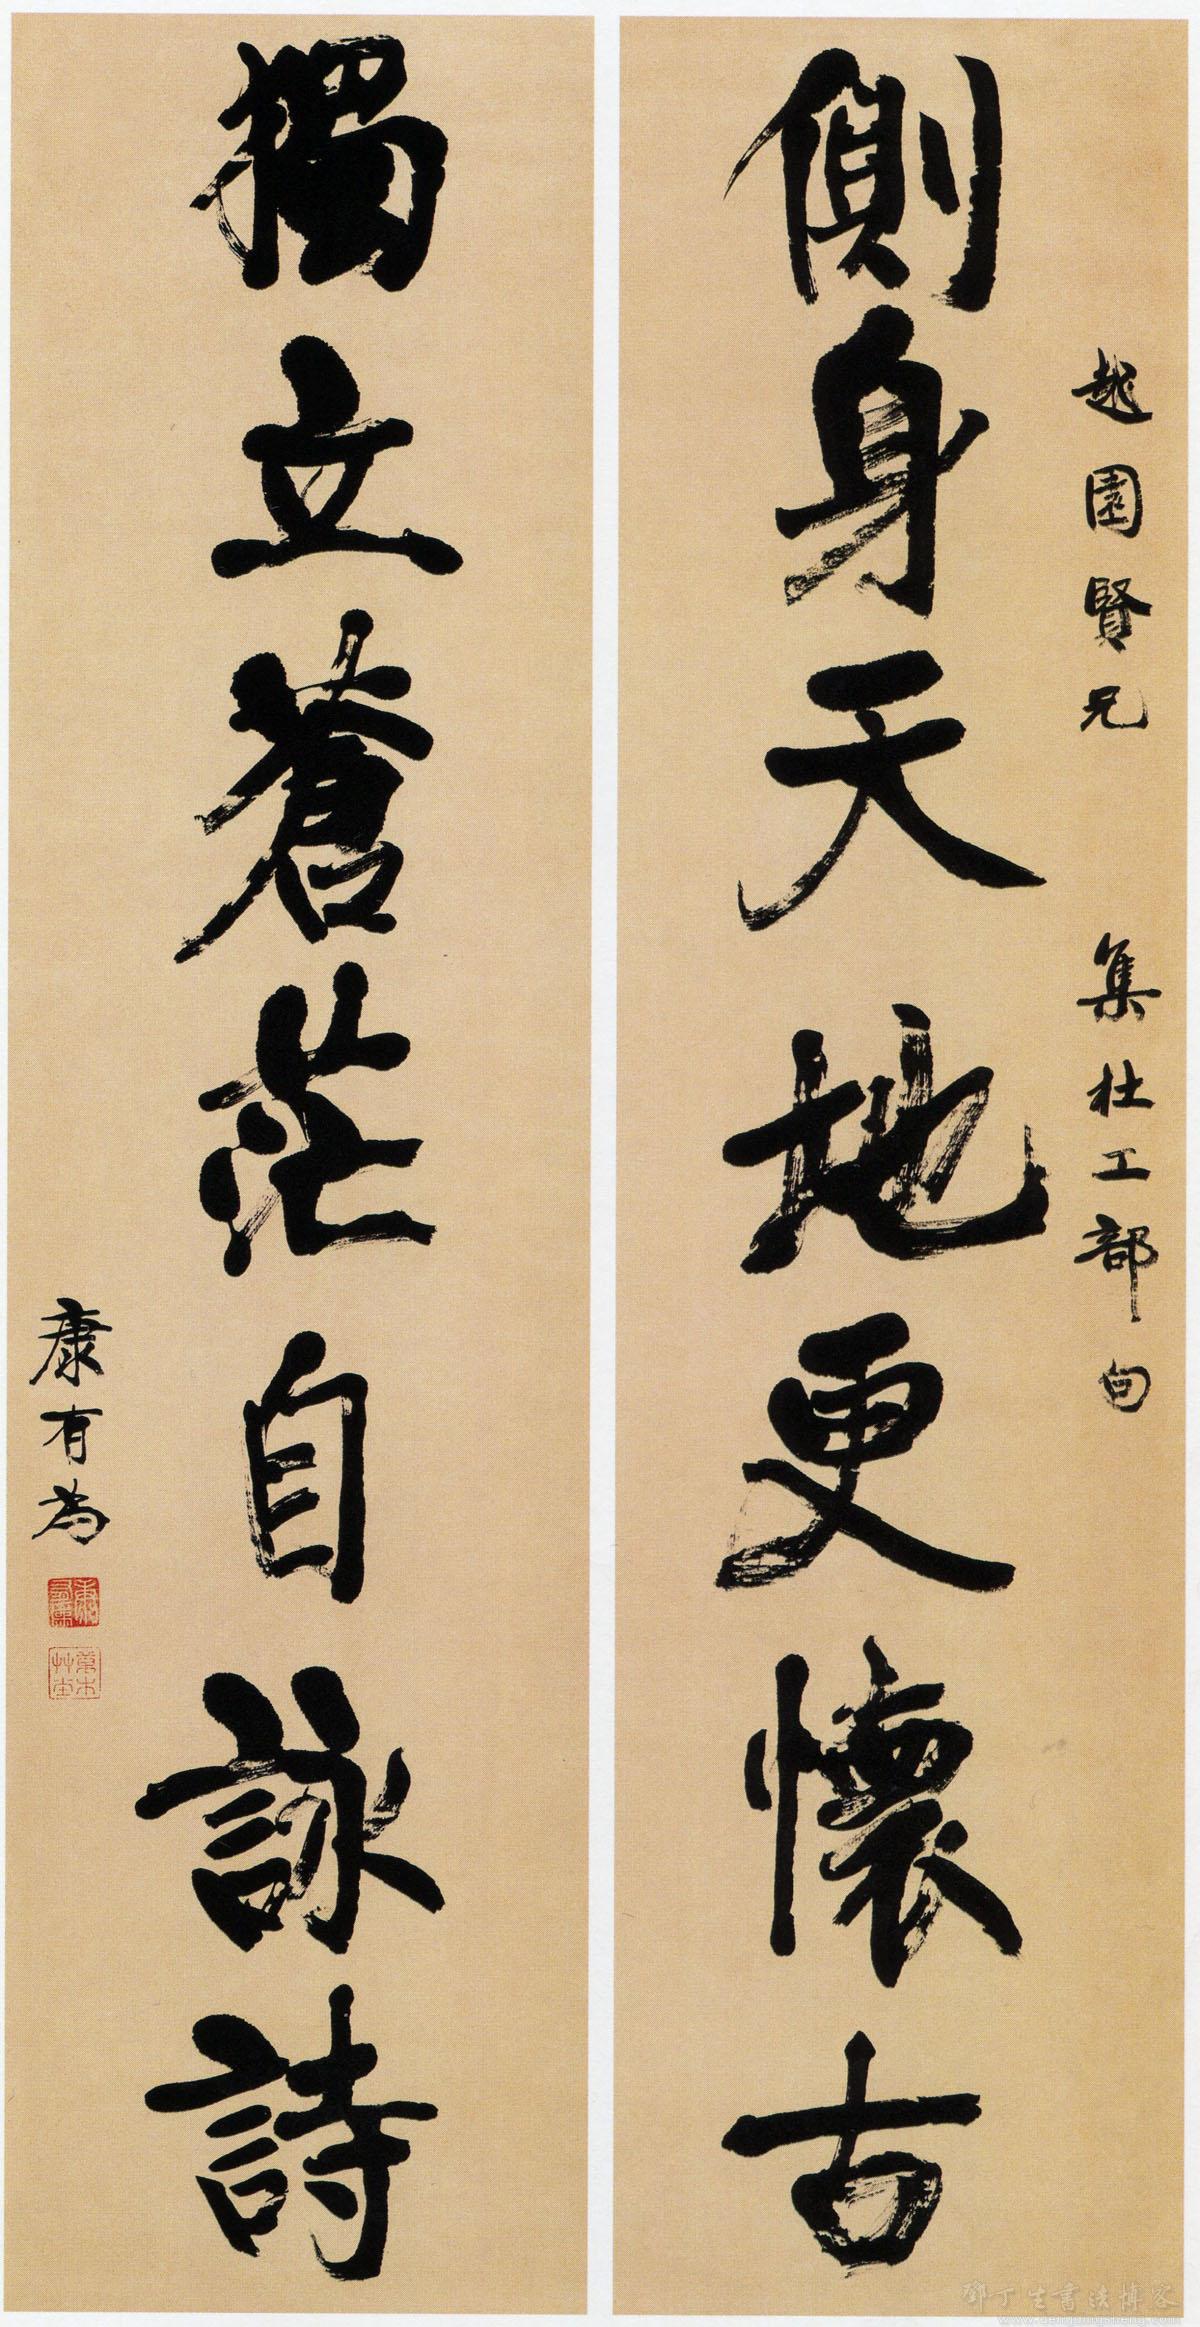 越園賢兄 集杜工部句
側身天地更懷古
獨立蒼茫自詠詩
康有為
康有為
萬木草堂
鄧丁生書法博客